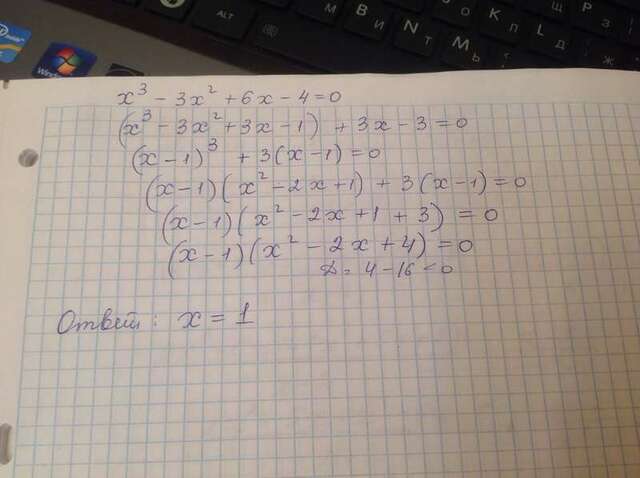 ALT
x³ - 3x² + 6x - 4 = 0
(x³ - 3x² + 3x - 1) + 3x - 3 = 0
(x - 1)³ + 3(x - 1) = 0
(x - 1)(x² - 2x + 1) + 3(x - 1) = 0
(x - 1)(x² - 2x + 1 + 3) = 0
(x - 1)(x² - 2x + 4) = 0
D = 4 - 16 < 0
Ответ: x = 1